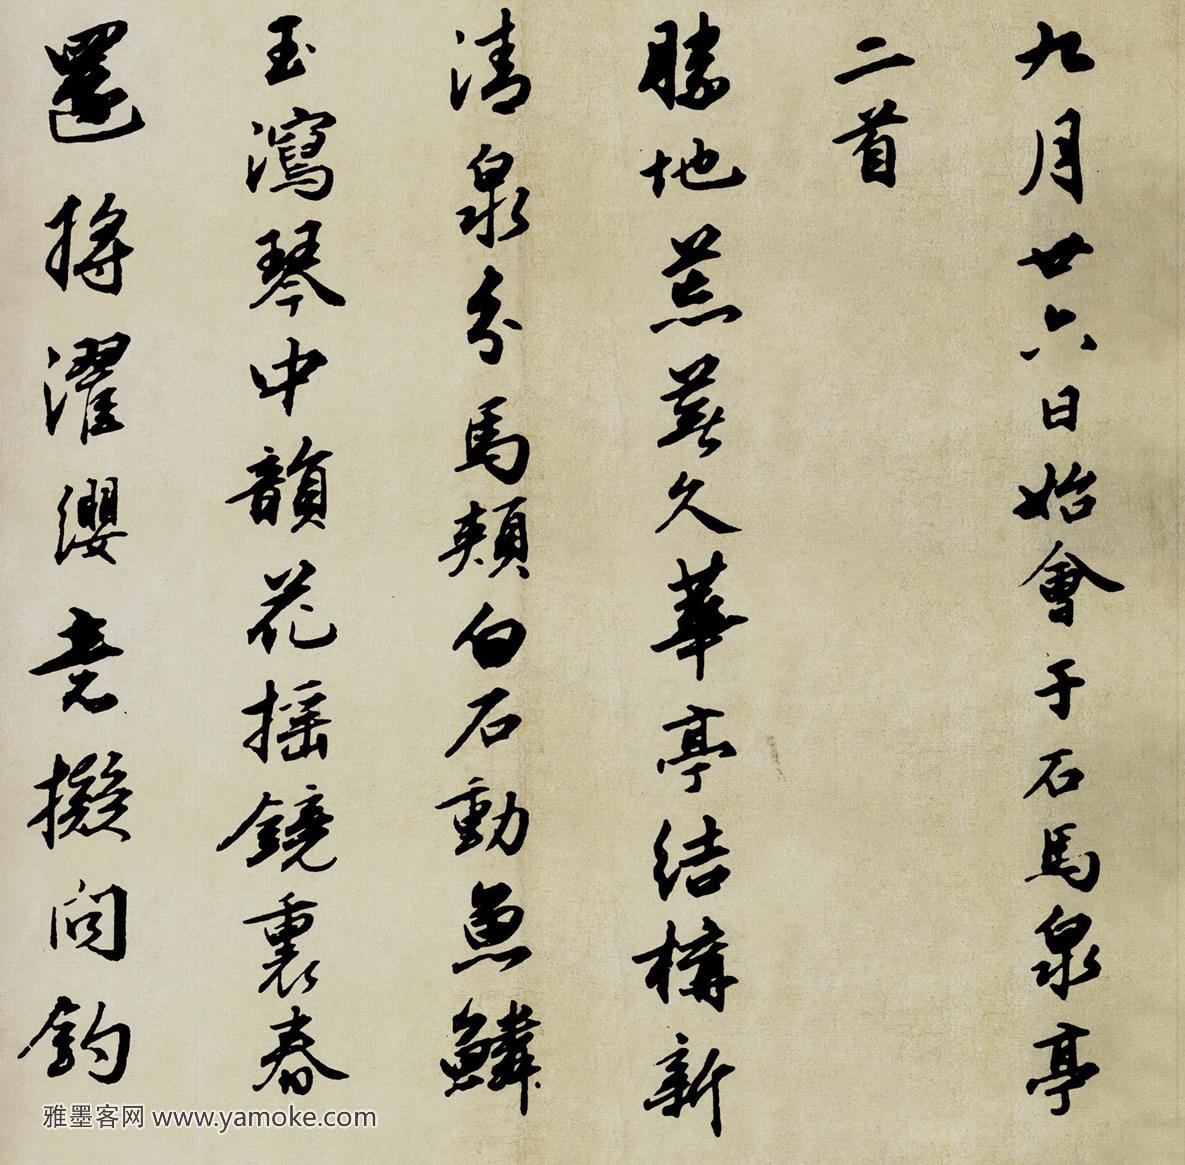 九月廿六日始會于石馬泉亭
二首
勝地荒蕪久華亭結構新
清泉分馬頰白石動魚鱗
玉瀉琴中韻花摇鏡裏春
還將濯纓意擬問釣
雅墨客网 www.yamoke.com